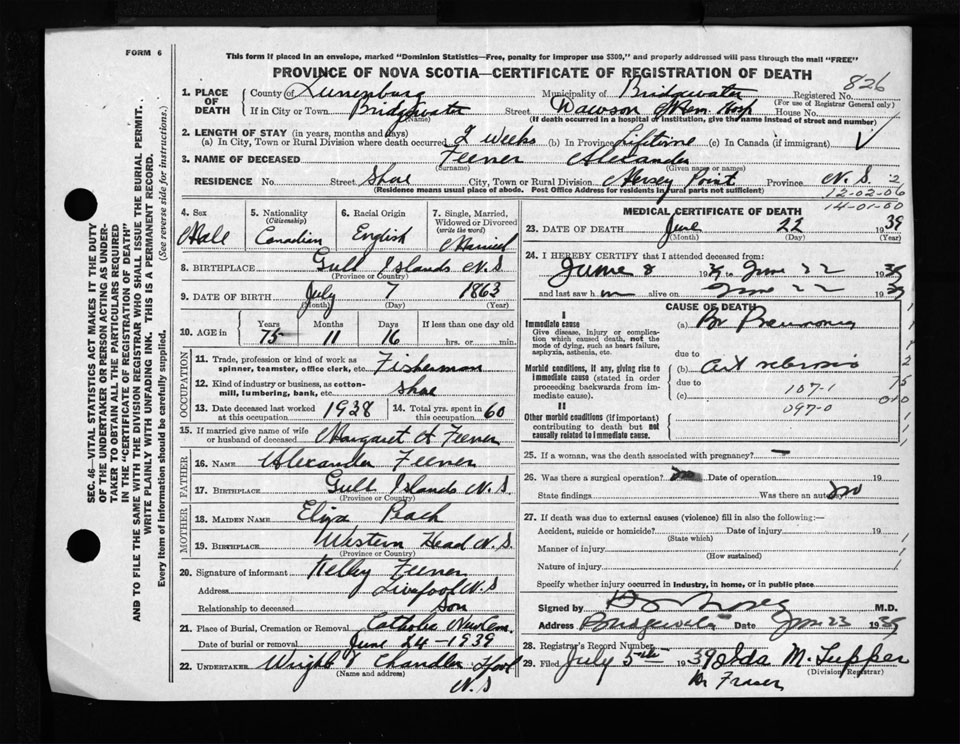 FORM 6
This form if placed in an envelope, marked "Dominion Statistics—Free, penalty for improper use $300," and properly addressed will pass through the mail "FREE"
PROVINCE OF NOVA SCOTIA—CERTIFICATE OF REGISTRATION OF DEATH
826
1. PLACE OF DEATH County of Lunenburg Municipality of Bridgewater Registered No.
(For use of Registrar General only)
If in City or Town Bridgewater Street Dawson Mem. Hosp House No.
(Name) (If death occurred in a hospital or institution, give the name instead of street and number)
2. LENGTH OF STAY (in years, months and days)
(a) In City, Town or Rural Division where death occurred 2 weeks (b) In Province Lifetime (c) In Canada (if immigrant)
3. NAME OF DECEASED Feener Alexander
(Surname) (Given name or names)
RESIDENCE No. Street Shore City, Town or Rural Division Mersey Point Province N.S. 2
(Residence means usual place of abode. Post Office Address for residents in rural parts not sufficient)
12-02-06
14-01-00
4. Sex Male
5. Nationality (Citizenship) Canadian
6. Racial Origin English
7. Single, Married, Widowed or Divorced (write the word) Married
8. BIRTHPLACE Gull Islands N.S
(Province or Country)
9. DATE OF BIRTH July 7 1863
(Month) (Day) (Year)
10. AGE in Years 75 Months 11 Days 16 If less than one day old hrs. or min.
OCCUPATION
11. Trade, profession or kind of work as spinner, teamster, office clerk, etc. Fisherman
12. Kind of industry or business, as cotton-mill, lumbering, bank, etc. Shore
13. Date deceased last worked at this occupation 1938 14. Total yrs. spent in this occupation 60
15. If married give name of wife or husband of deceased Margaret A Feener
FATHER
16. NAME Alexander Feener
17. BIRTHPLACE Gull Islands N.S.
(Province or Country)
MOTHER
18. MAIDEN NAME Eliza Roach
19. BIRTHPLACE Western Head N.S.
(Province or Country)
20. Signature of informant Kelby Feener
Address Liverpool N.S
Relationship to deceased Son
21. Place of Burial, Cremation or Removal Catholic
Date of burial or removal June 24 - 1939
22. UNDERTAKER Wright Chandler L'pool
(Name and address) N.S
MEDICAL CERTIFICATE OF DEATH
23. DATE OF DEATH June 22 1939
(Month) (Day) (Year)
24. I HEREBY CERTIFY that I attended deceased from:
June 8 1939 to June 22 1939
and last saw him alive on June 22 1939
CAUSE OF DEATH
I
Immediate cause (a) Br Pneumonia
Give disease, injury or complication which caused death, not the mode of dying, such as heart failure, asphyxia, asthenia, etc.
due to
Morbid conditions, if any, giving rise to immediate cause (stated in order proceeding backwards from immediate cause). (b) Art sclerosis
due to
(c) 107-1
097-0
II
Other morbid conditions (if important) contributing to death but not causally related to immediate cause.
25. If a woman, was the death associated with pregnancy? -
26. Was there a surgical operation? no Date of operation 19
State findings Was there an autopsy no
27. If death was due to external causes (violence) fill in also the following:—
Accident, suicide or homicide? Date of injury 19
(State which)
Manner of injury
(How sustained)
Nature of injury
Specify whether injury occurred in industry, in home, or in public place
Signed by M.D.
Address Bridgewater Date June 23 1939
28. Registrar's Record Number
29. Filed July 5th 1939 Ida M. Tupper
(Division Registrar)
Fraser
SEC. 46—VITAL STATISTICS ACT MAKES IT THE DUTY
OF THE UNDERTAKER OR PERSON ACTING AS UNDER-
TAKER TO OBTAIN ALL THE PARTICULARS REQUIRED
IN THE "CERTIFICATE OF REGISTRATION OF DEATH"
AND TO FILE THE SAME WITH THE DIVISION REGISTRAR WHO SHALL ISSUE THE BURIAL PERMIT.
WRITE PLAINLY WITH UNFADING INK. THIS IS A PERMANENT RECORD.
Every item of information should be carefully supplied. (See reverse side for instructions.)